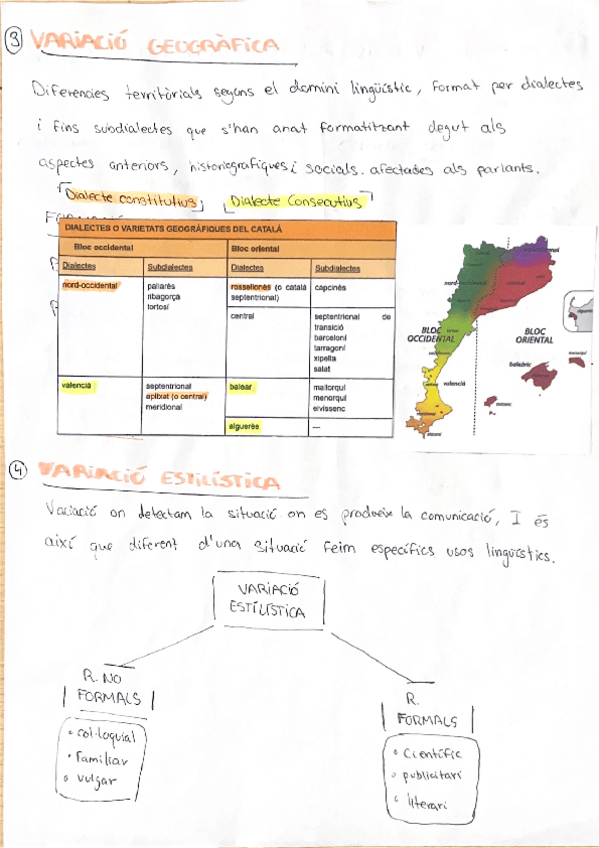 3 VARIACIÓ GEOGRÀFICA
Diferencies territòrials segons el domini lingüístic, format per dialectes
i fins subdialectes que s'han anat formatitzant degut als
aspectes anteriors, historiografiques i socials. afectades als parlants.
Dialecte constitutius Dialecte Consecutius
DIALECTES O VARIETATS GEOGRÀFIQUES DEL CATALÀ
Bloc occidental Bloc oriental
Dialectes Subdialectes Dialectes Subdialectes
nord-occidental
pallarès
ribagorçà
tortosí
rossellonès (o català
septentrional)
capcinès
central
septentrional de
transició
barceloní
tarragoní
xipella
salat
valencià
septentrional
apitxat (o central)
meridional
balear
mallorquí
menorquí
eivissenc
alguerès —
nord-occidental
BLOC
OCCIDENTAL
BLOC
ORIENTAL
valencià
balearic
4 VARIACIÓ ESTILÍSTICA
Variació on detectam la situació on es produeix la comunicació, I és
així que diferent d'una situació feim específics usos lingüístics.
VARIACIÓ
ESTILÍSTICA
R. NO
FORMALS
• col·loquial
• Familiar
• vulgar
R.
FORMALS
• Científic
• publicitari
• literari